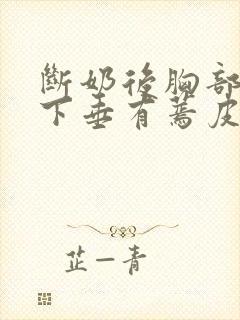 斷奶後胸部
下垂有蔫皮
芷一青